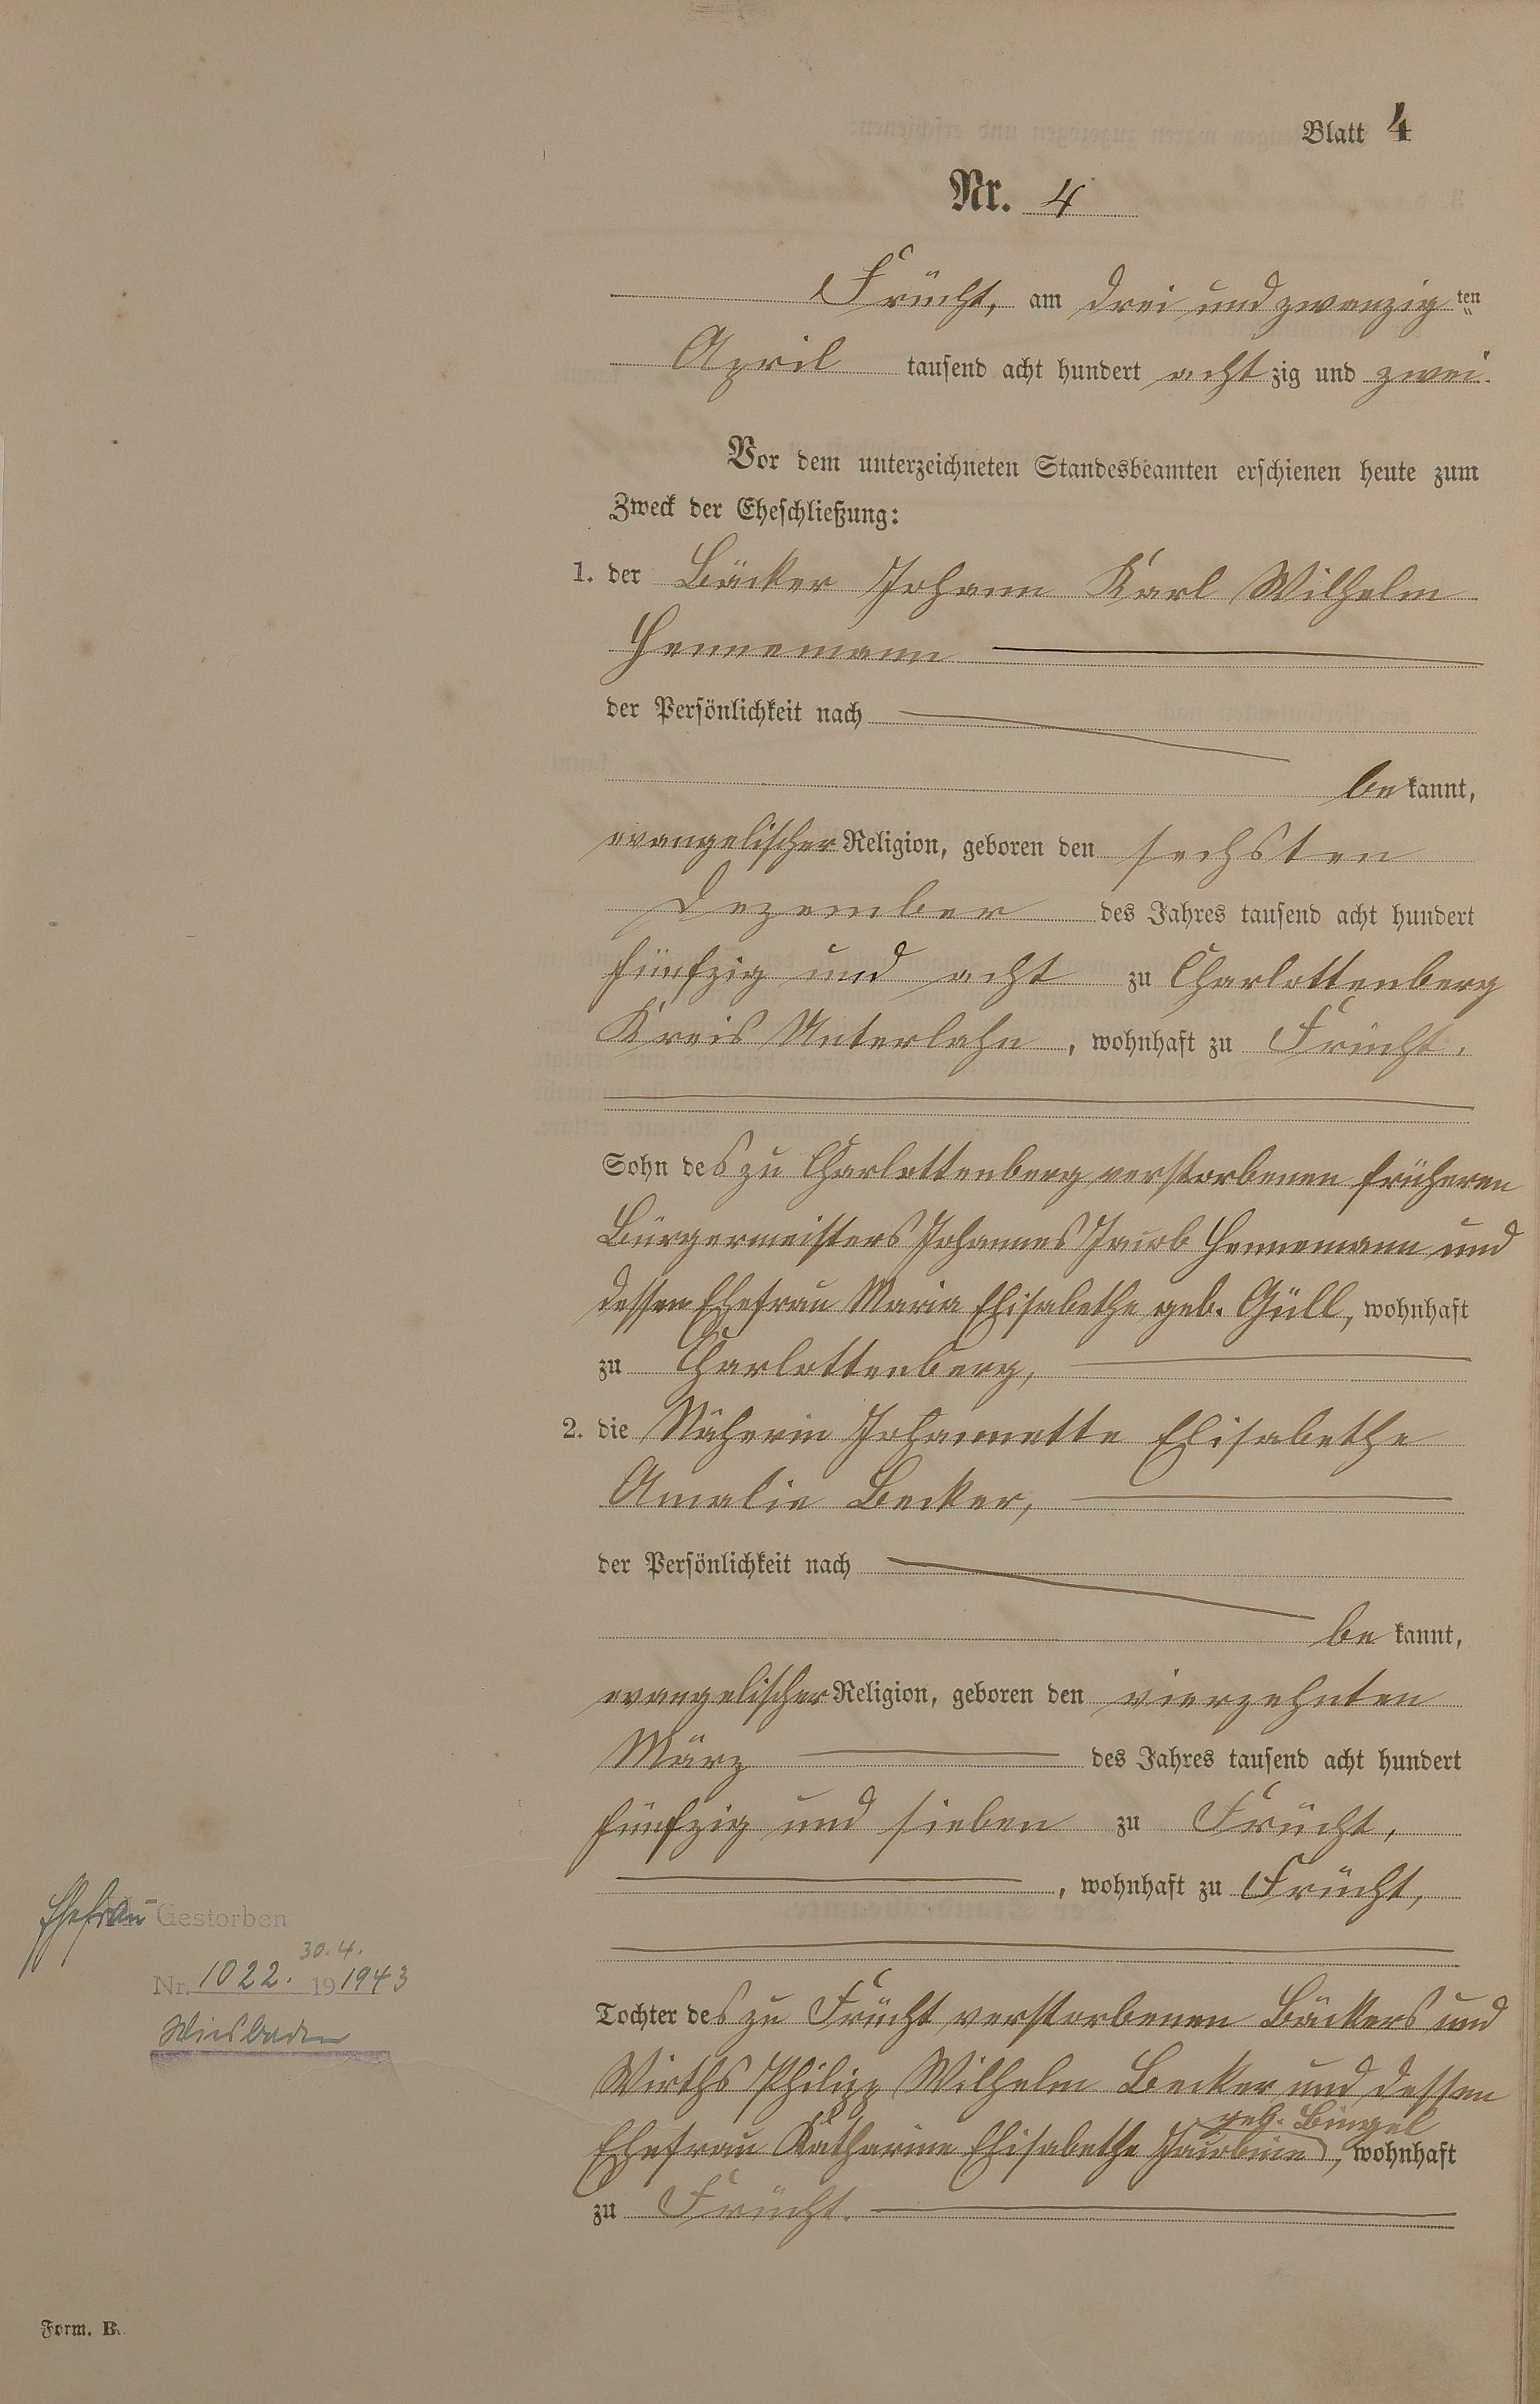 Blatt 4
Nr. 4
Frücht, am drei und zwanzig ten
April tausend acht hundert acht zig und zwei.
Vor dem unterzeichneten Standesbeamten erschienen heute zum
Zweck der Eheschließung:
1. der Bäcker Johann Karl Wilhelm
Hennemann
der Persönlichkeit nach
be kannt,
evangelischer Religion, geboren den sechsten
Dezember des Jahres tausend acht hundert
fünfzig und acht zu Charlottenberg
Kreis Unterlahn, wohnhaft zu Frücht.
Sohn des zu Charlottenberg verstorbenen früheren
Bürgermeisters Johannes Jacob Hennemann und
dessen Ehefrau Maria Elisabethe geb. Güll, wohnhaft
zu Charlottenberg,
2. die Näherin Johannette Elisabethe
Amalie Becker,
der Persönlichkeit nach
be kannt,
evangelischer Religion, geboren den vierzehnten
März des Jahres tausend acht hundert
fünfzig und sieben zu Frücht,
, wohnhaft zu Frücht,
Tochter des zu Frücht verstorbenen Bäckers und
Wirths Philipp Wilhelm Becker und dessen
geb. Bingel
Ehefrau Katharine Elisabethe Jacobine, wohnhaft
zu Frücht.
Ehefrau Gestorben
30.4.
Nr. 1022. 19 1943
Wiesbaden
Form. B.